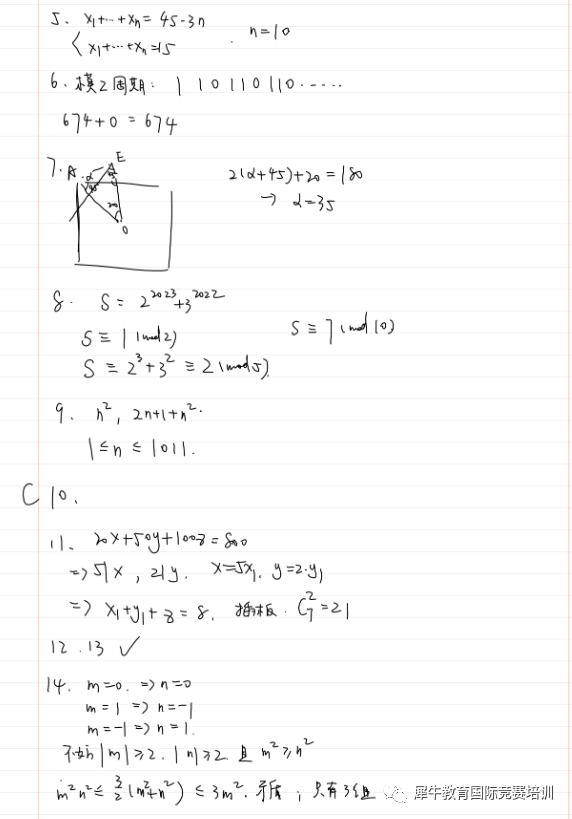 5. x₁+…+xₙ = 45-3n
x₁+…+xₙ=15
n=10
6. 模2周期: 1 1 0 1 1 0 1 1 0 ……
674+0 = 674
7. A α E
45
20
O
2(α+45)+20=180
→ α=35
8. S = 2²⁰²³+3²⁰²²
S ≡ 1 (mod 2)
S ≡ 7 (mod 10)
S ≡ 2³+3² ≡ 2 (mod 5)
9. n², 2n+1+n².
1≤n≤1011.
C 10.
11. 20x+50y+100z=800
⇒ 5|x, 2|y. x=5x₁, y=2·y₁
⇒ x₁+y₁+z=8. 插板. C₇²=21
12. 13 ✓
14. m=0. ⇒ n=0
m=1 ⇒ n=-1
m=-1 ⇒ n=1.
不妨|m|≥2. |n|≥2 且 m²≥n²
m²n²≤ 3/2(m²+n²) ≤3m². 矛盾; 只有3组
犀牛教育国际竞赛培训